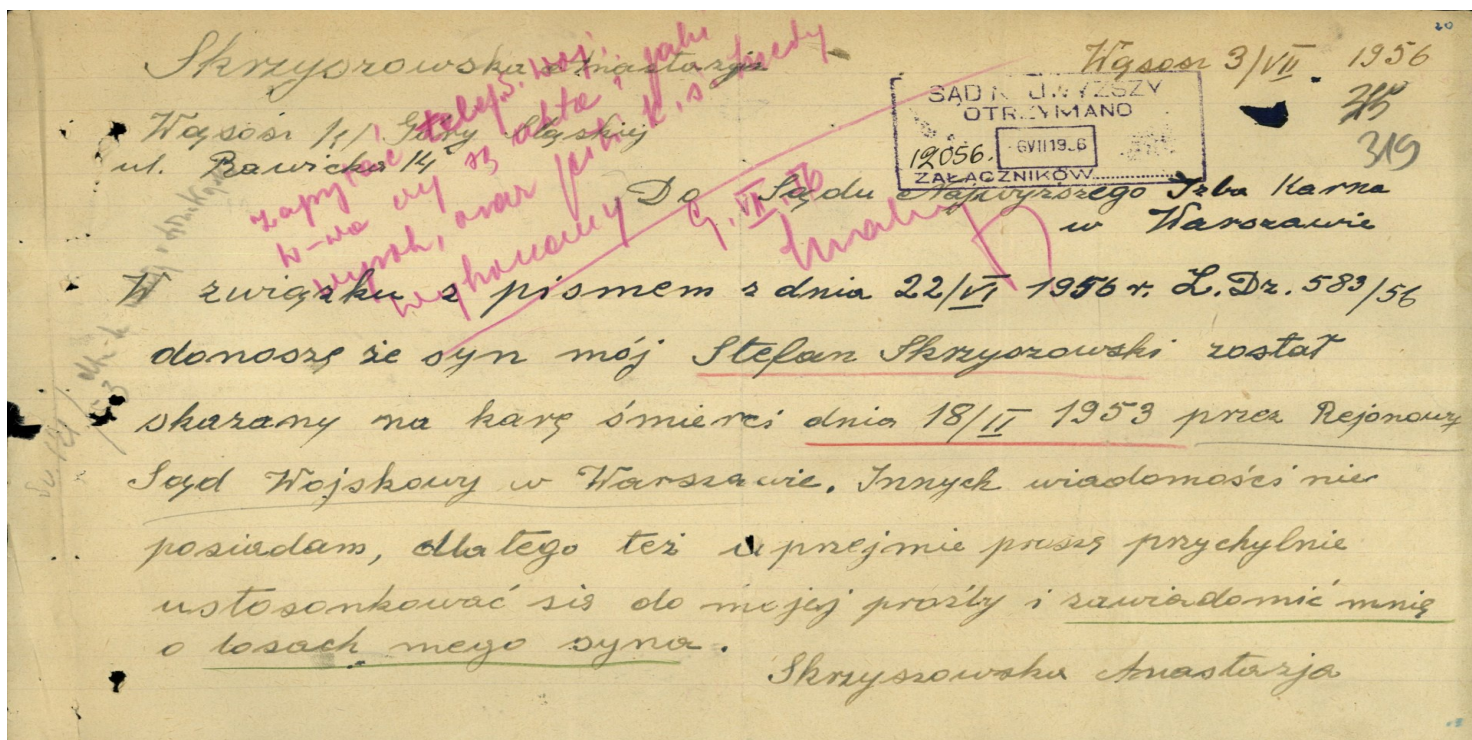 20
Skrzyszowska Anastazja
Wąsosz 3/VII 1956
315
319
Wąsosz k/ Góry Śląskiej
ul. Rawicka 14
SĄD N
OTRZYMANO
12056. 6 VII 19 6
ZAŁĄCZNIKÓW
Do Sądu Najwyższego Izba Karna
w Warszawie
zapytać telef. woj.
w-wa czy są akta, jaki
wyrok, oraz jeśli k.s. kiedy
wykonany
9. VII 56
W związku z pismem z dnia 22/VI 1956 r. L.Dz. 583/56
donoszę że syn mój Stefan Skrzyszowski został
skazany na karę śmierci dnia 18/II 1953 przez Rejonowy
Sąd Wojskowy w Warszawie. Innych wiadomości nie
posiadam, dlatego też uprzejmie proszę przychylnie
ustosonkować się do mojej prośby i zawiadomić mnię
o losach mego syna.
Skrzyszowska Anastazja